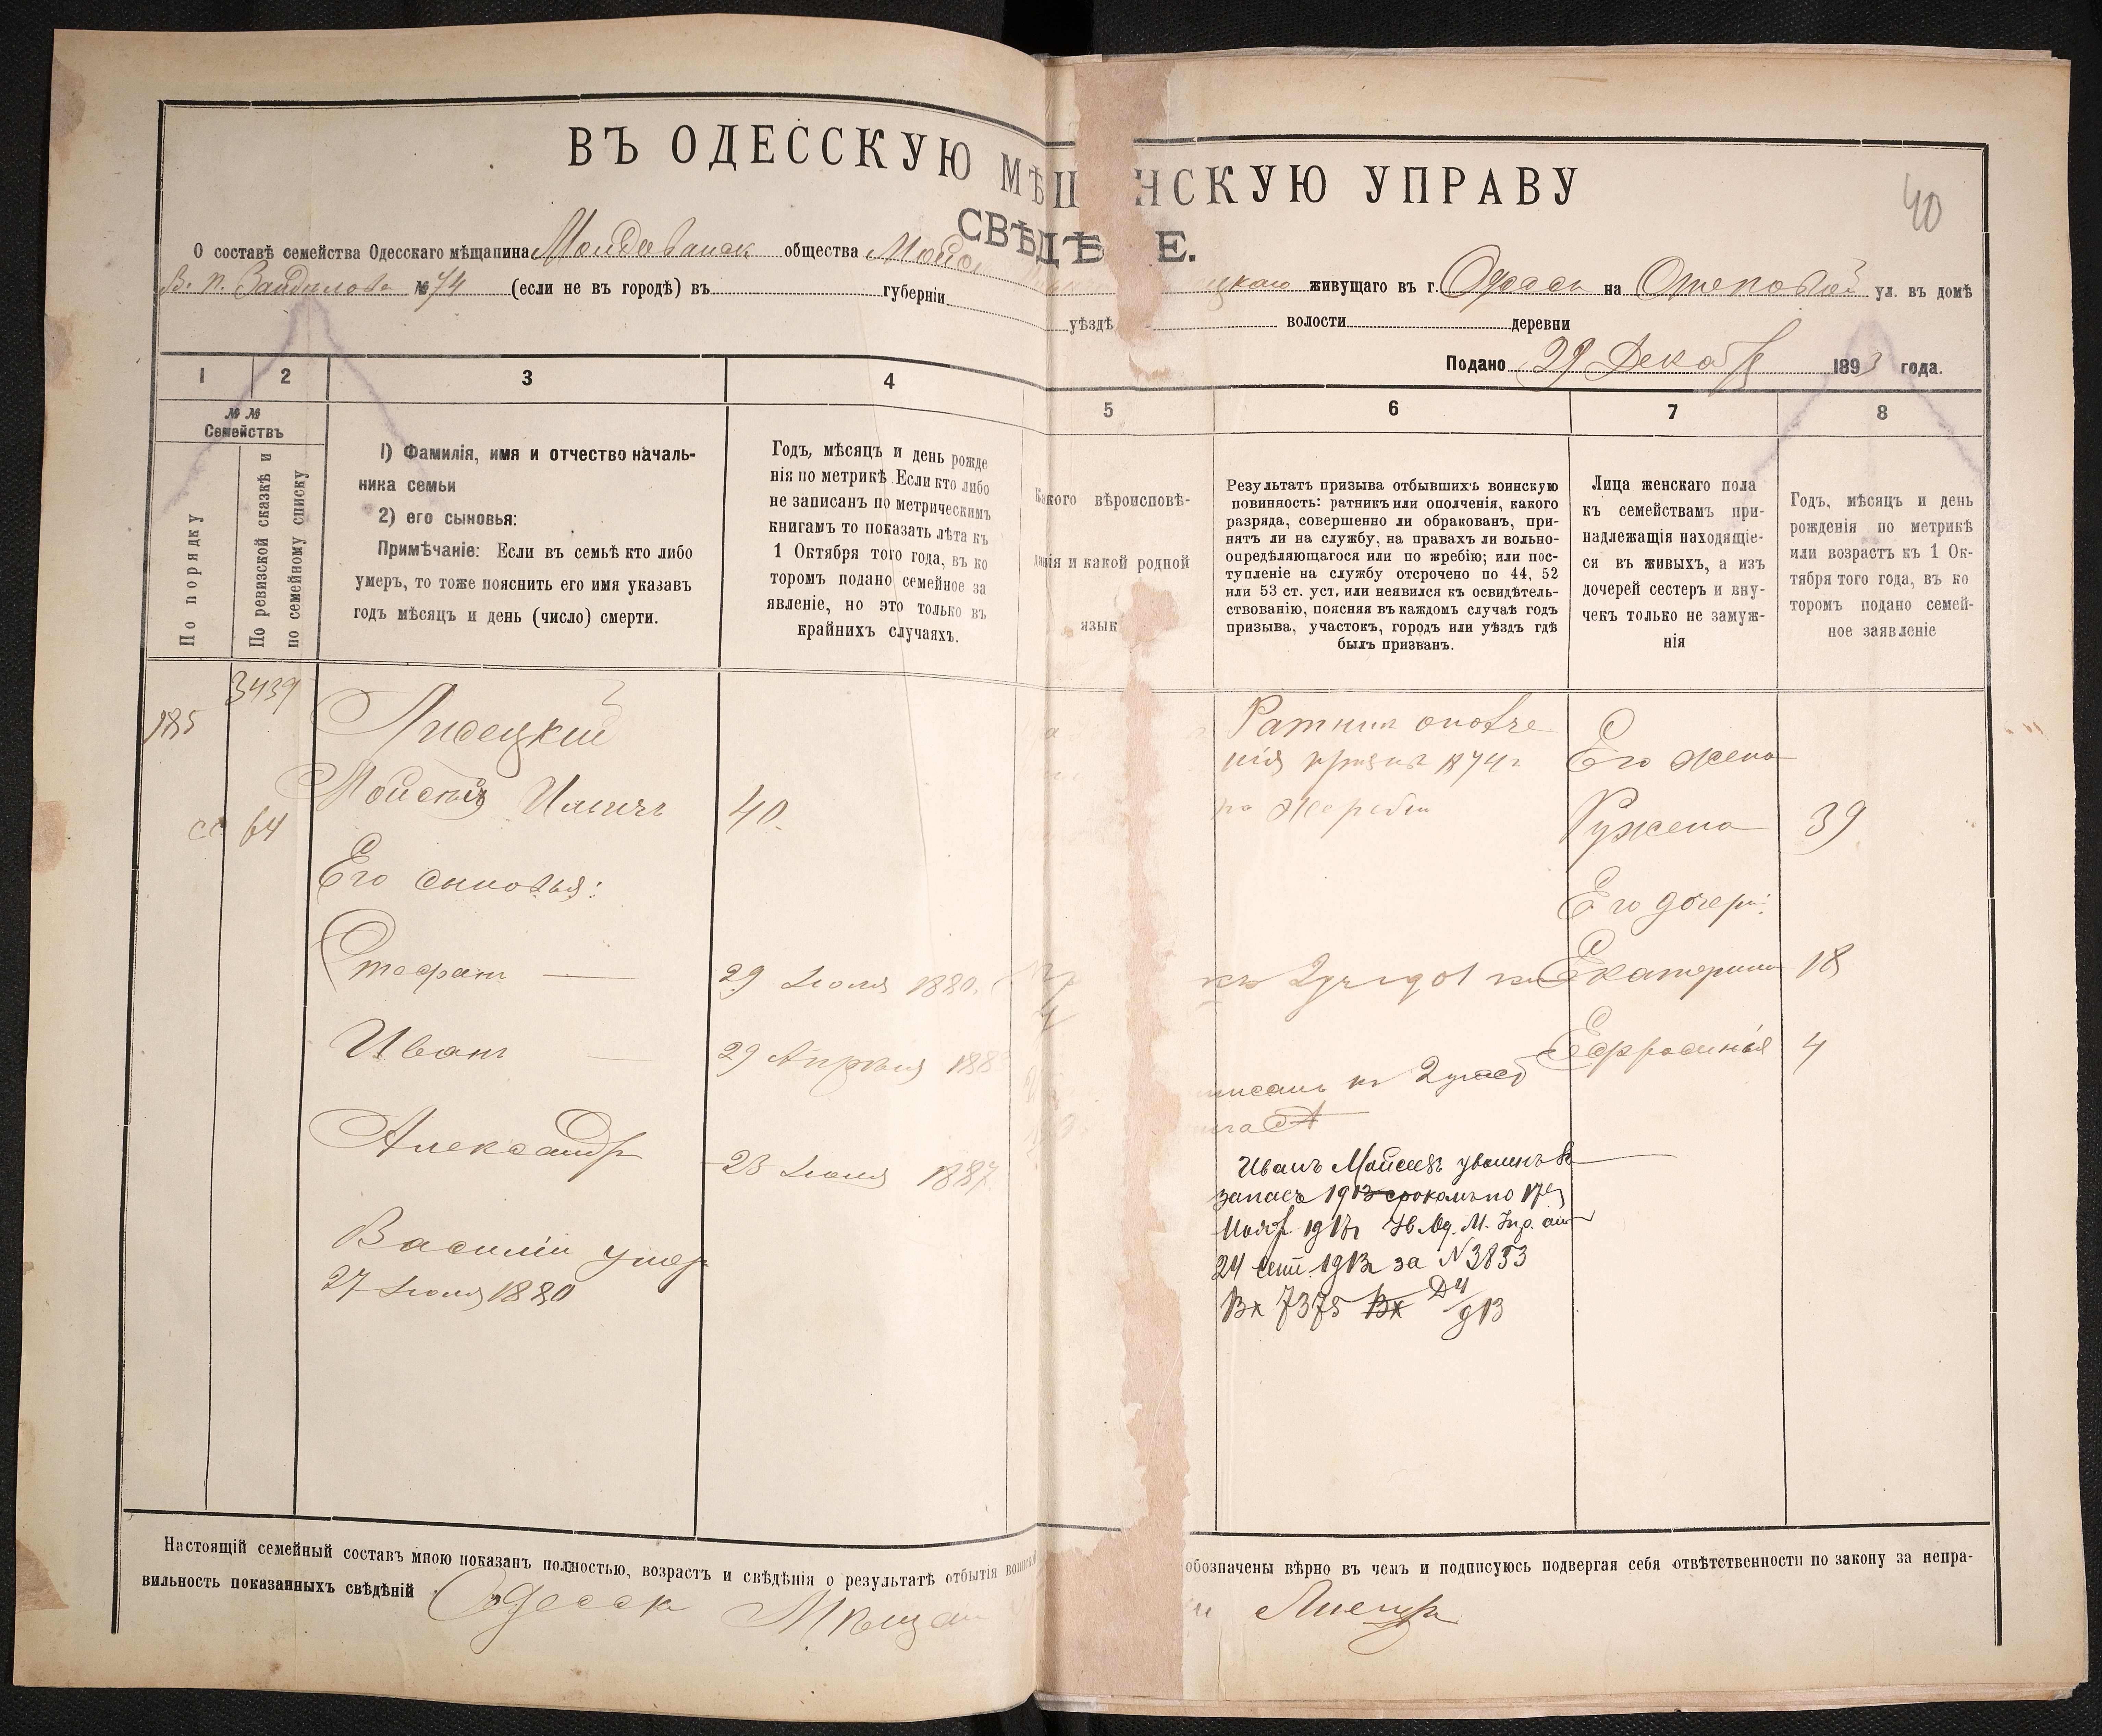 ВЪ ОДЕССКУЮ МѢЩ НСКУЮ УПРАВУ
40
СВѢДѢ Е.
О составѣ семейства Одесскаго мѣщанина Молдаванск общества Мойс
цкаго живущаго въ г. Одессѣ на Степовой ул. въ домѣ
В. П. №74 (если не въ городѣ) въ губерніи
уѣздѣ волости деревни
Подано 29 Декабр 1893 года.
1 2 3 4 5 6 7 8
№ №
Семействъ
По порядку
По ревизской сказкѣ и
по семейному списку
1) Фамилія, имя и отчество началь-
ника семьи
2) его сыновья:
Примѣчаніе: Если въ семьѣ кто либо
умеръ, то тоже пояснить его имя указавъ
годъ мѣсяцъ и день (число) смерти.
Годъ, мѣсяцъ и день рожде
нія по метрикѣ Если кто либо
не записанъ по метрическимъ
книгамъ то показать лѣта къ
1 Октября того года, въ ко
торомъ подано семейное за
явленіе, но это только въ
крайнихъ случаяхъ.
Какого вѣроисповѣ-
данія и какой родной
языкъ
Результатъ призыва отбывшихъ воинскую
повинность: ратникъ или ополченія, какого
разряда, совершенно ли обракованъ, при-
нятъ ли на службу, на правахъ ли вольно-
опредѣляющагося или по жребію; или пос-
тупленіе на службу отсрочено по 44, 52
или 53 ст. уст. или неявился къ освидѣтель-
ствованію, поясняя въ каждомъ случаѣ годъ
призыва, участокъ, городъ или уѣздъ гдѣ
былъ призванъ.
Лица женскаго пола
къ семействамъ при-
надлежащія находящіе-
ся въ живыхъ, а изъ
дочерей сестеръ и вну-
чекъ только не замуж-
нія
Годъ, мѣсяцъ и день
рожденія по метрикѣ
или возрастъ къ 1 Ок-
тября того года, въ ко
торомъ подано семей-
ное заявленіе
3439
185
64
Мойсей Ильичъ 40.
Его сыновья:
Стефанъ — 29 Іюля 1880.
Иванъ — 29 Апрѣля 188
Александр 23 Іюля 1887.
Василій умер
27 Іюля 1880
Ратник ополче
нія призыв 1874 г.
по жеребью
къ 2
писанъ къ 2 участ
Иванъ Мойсеевъ уволенъ въ
запасъ 1913 срокомъ по 17
Нояб
24 сент. 1913 за N 3853
Вх 7375 Вх
Его жена
Ружена 39
Его дочери:
Екатерина 18
Ефросинья 4
Настоящій семейный составъ мною показанъ полностью, возрастъ и свѣдѣнія о результатѣ отбытія воинско обозначены вѣрно въ чемъ и подписуюсь подвергая себя отвѣтственности по закону за непра-
вильность показанныхъ свѣдѣній Одесск Мѣщан